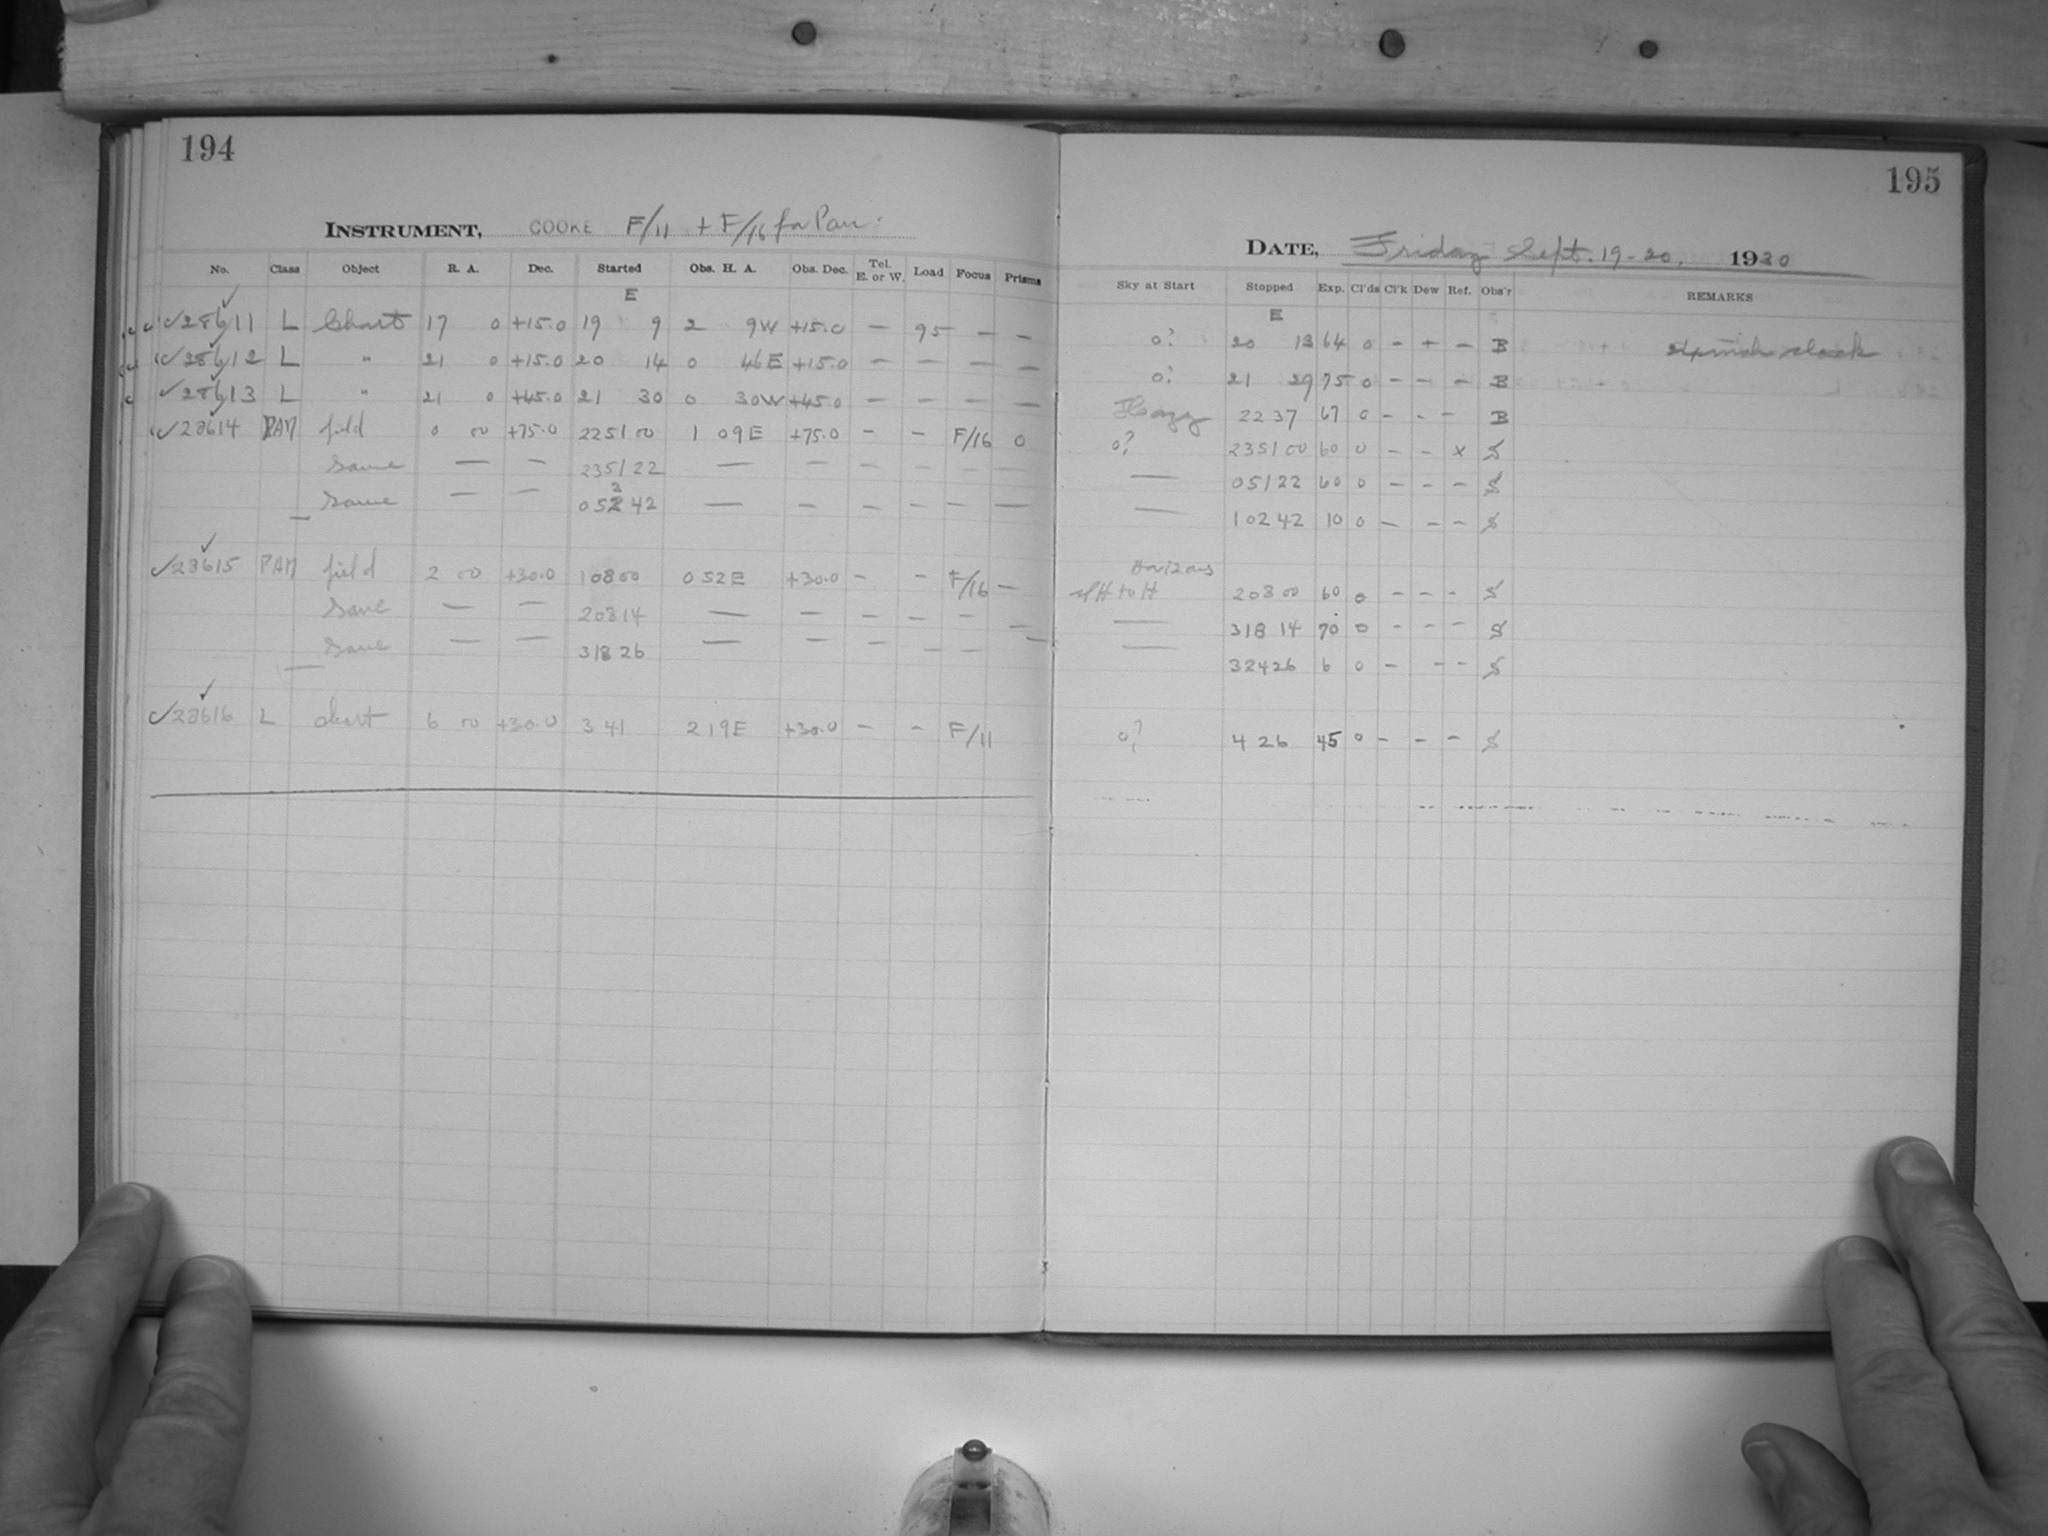 194
INSTRUMENT, COOKE F/11 + F/16 for Pan.
No. Class Object R. A. Dec. Started Obs. H. A. Obs. Dec. Tel. E. or W. Load Focus Prisms
E
28611 L Chart 17 0 +15.0 19 9 2 9W +15.0 — 95 — —
28612 L " 21 0 +15.0 20 14 0 46E +15.0 — — — —
28613 L " 21 0 +45.0 21 30 0 30W +45.0 — — — —
28614 PAN field 0 00 +75.0 225100 1 09E +75.0 — — F/16 0
Same — — 235122 — — — — — —
Same — — 053 42 — — — — — —
28615 PAN field 2 00 +30.0 10800 052E +30.0 — — F/16 —
Same — — 20814 — — — — — —
Same — — 31826 — — — — — —
28616 L chart 6 00 +30.0 3 41 2 19E +30.0 — — F/11
195
DATE, Friday Sept. 19-20, 1930
Sky at Start Stopped Exp. Cl'ds Cl'k Dew Ref. Obs'r REMARKS
E
0? 20 13 64 0 - + - B
0? 21 29 75 0 - - - B
Hazy 22 37 67 0 - - - B
0? 235100 60 0 - - x S
— 05122 60 0 - - - S
— 10242 10 0 - - - S
Horizons
H to H 20800 60 0 - - - S
— 318 14 70 0 - - - S
— 32426 6 0 - - - S
0? 4 26 45 0 - - - S